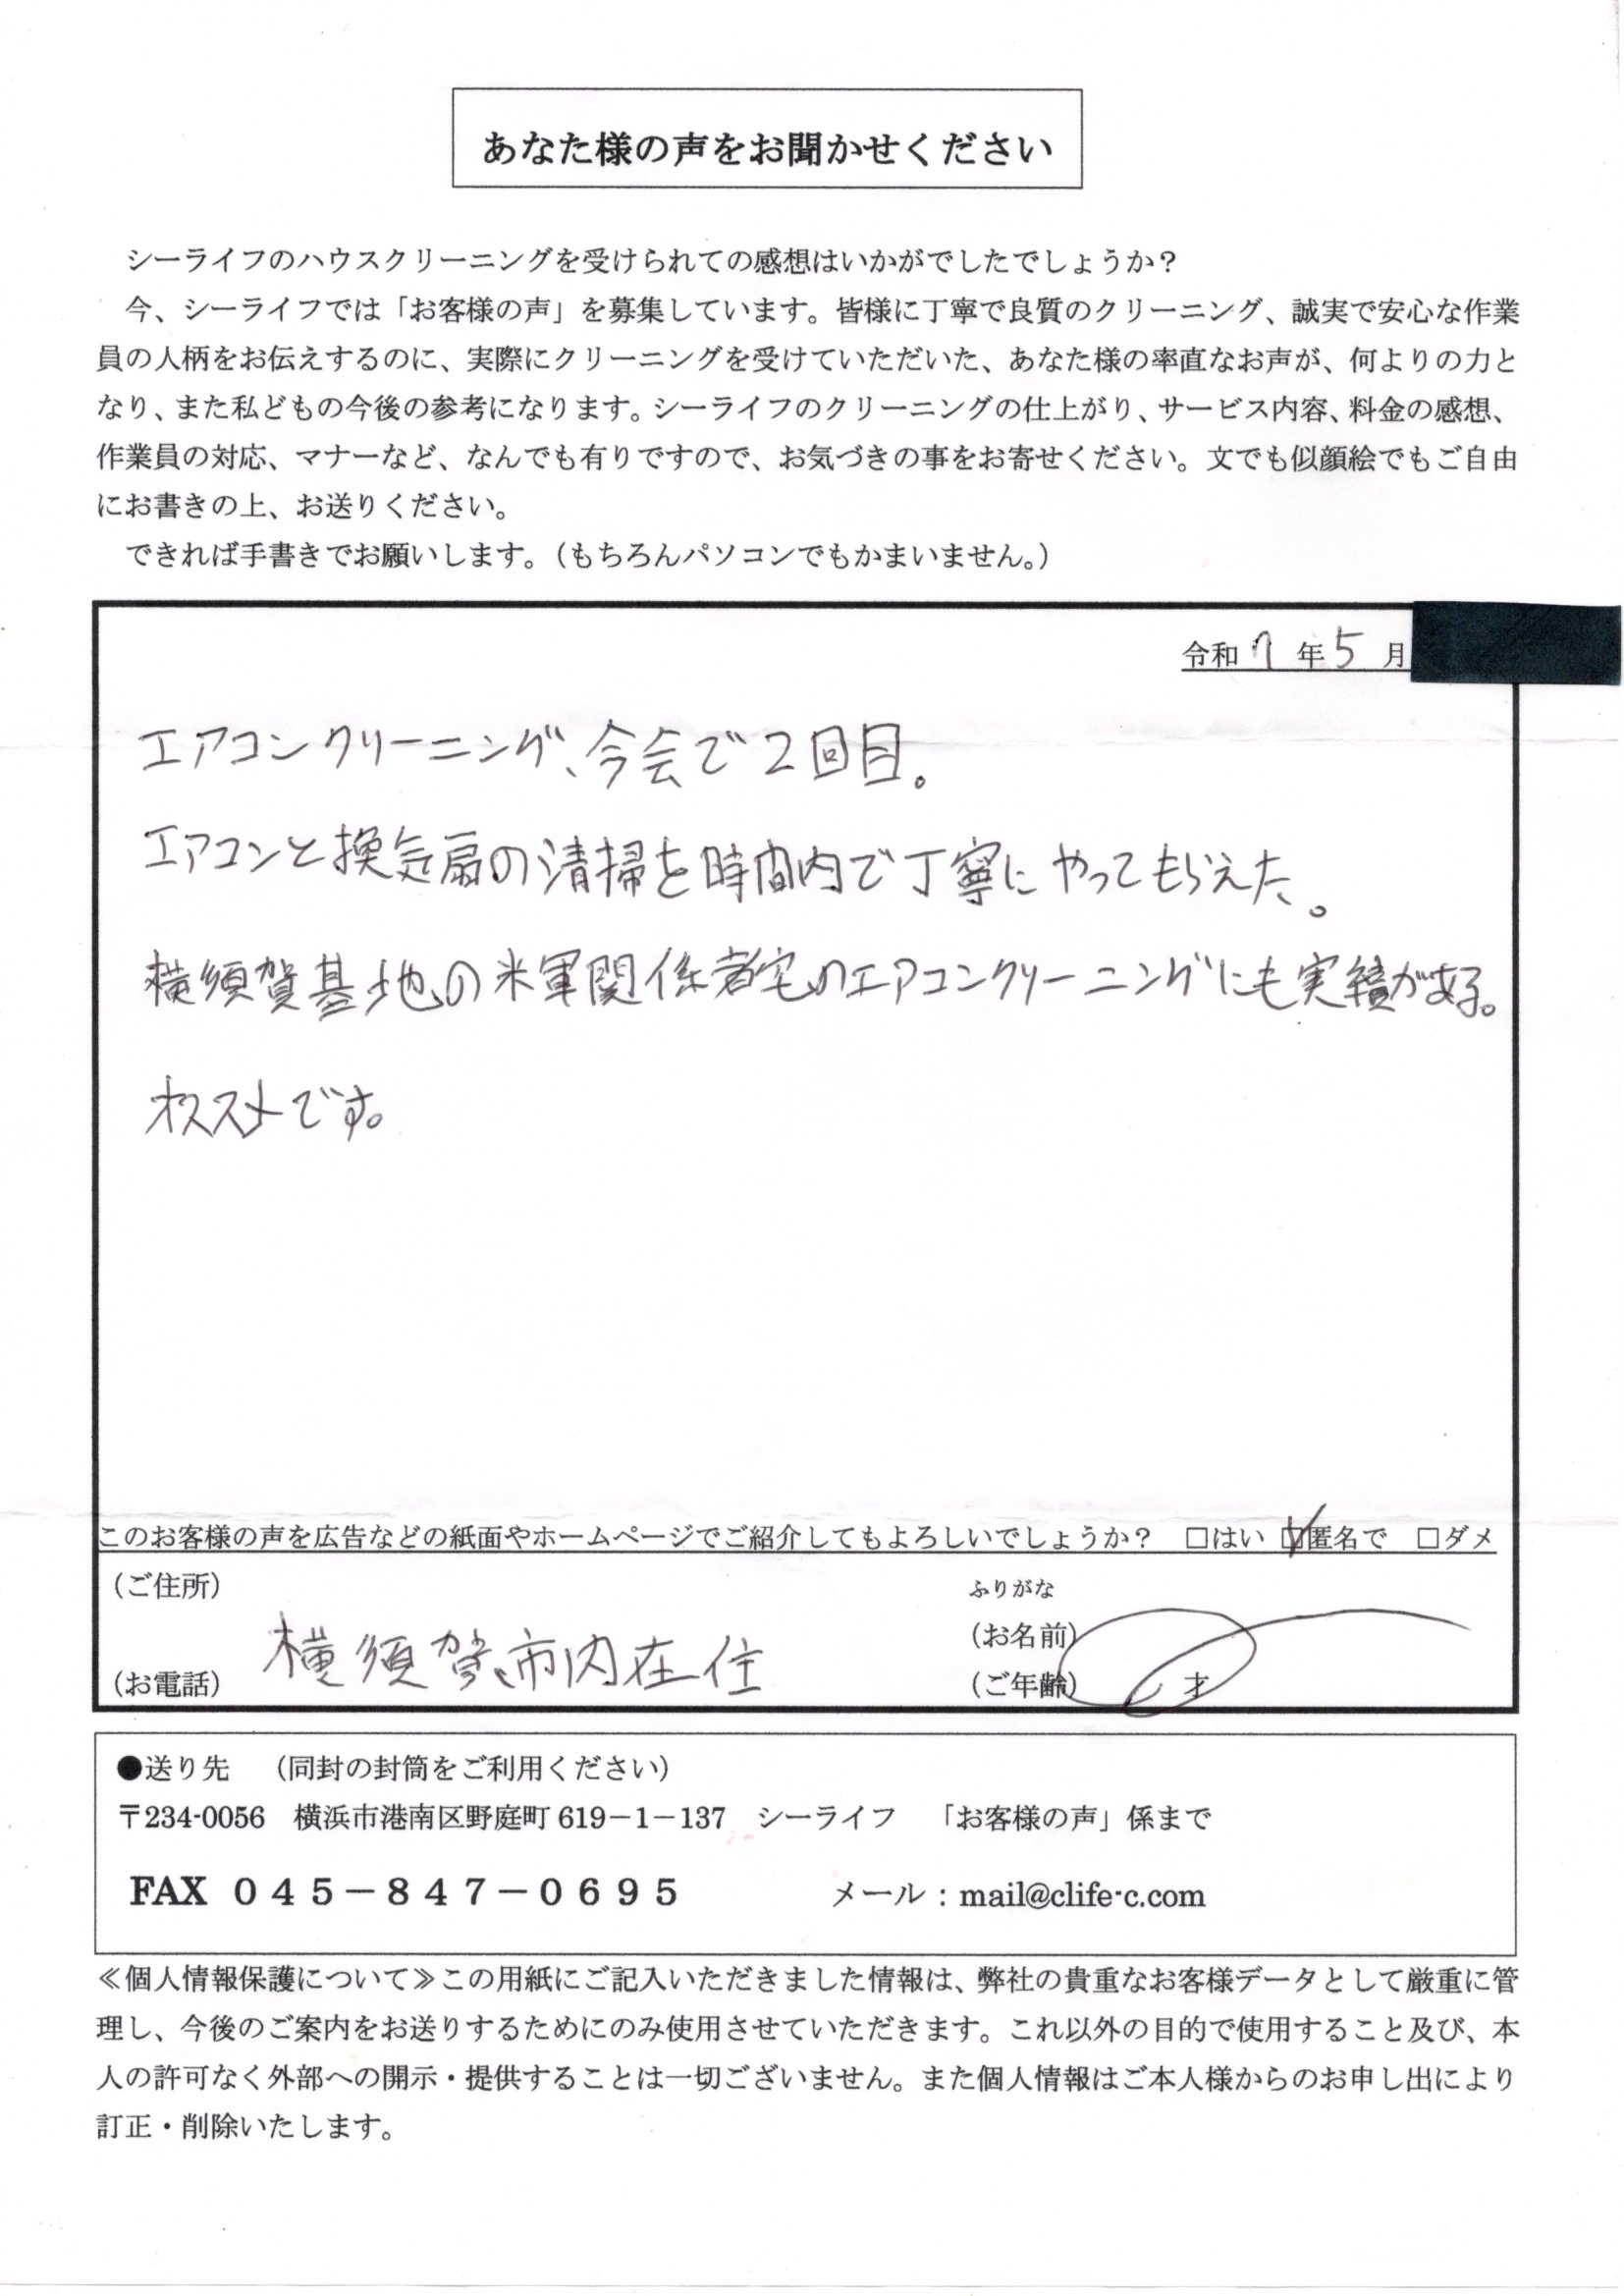 あなた様の声をお聞かせください
シーライフのハウスクリーニングを受けられての感想はいかがでしたでしょうか？
今、シーライフでは「お客様の声」を募集しています。皆様に丁寧で良質のクリーニング、誠実で安心な作業
員の人柄をお伝えするのに、実際にクリーニングを受けていただいた、あなた様の率直なお声が、何よりの力と
なり、また私どもの今後の参考になります。シーライフのクリーニングの仕上がり、サービス内容、料金の感想、
作業員の対応、マナーなど、なんでも有りですので、お気づきの事をお寄せください。文でも似顔絵でもご自由
にお書きの上、お送りください。
できれば手書きでお願いします。（もちろんパソコンでもかまいません。）
令和 7 年 5 月
エアコンクリーニング、今会で2回目。
エアコンと換気扇の清掃を時間内で丁寧にやってもらえた。
横須賀基地の米軍関係者宅のエアコンクリーニングにも実績がある。
オススメです。
このお客様の声を広告などの紙面やホームページでご紹介してもよろしいでしょうか？ □はい ☑匿名で □ダメ
（ご住所） ふりがな
横須賀市内在住 （お名前）
（お電話） （ご年齢） 才
●送り先 （同封の封筒をご利用ください）
〒234-0056 横浜市港南区野庭町 619－1－137 シーライフ 「お客様の声」係まで
FAX ０４５－８４７－０６９５ メール：mail@clife-c.com
≪個人情報保護について≫この用紙にご記入いただきました情報は、弊社の貴重なお客様データとして厳重に管
理し、今後のご案内をお送りするためにのみ使用させていただきます。これ以外の目的で使用すること及び、本
人の許可なく外部への開示・提供することは一切ございません。また個人情報はご本人様からのお申し出により
訂正・削除いたします。